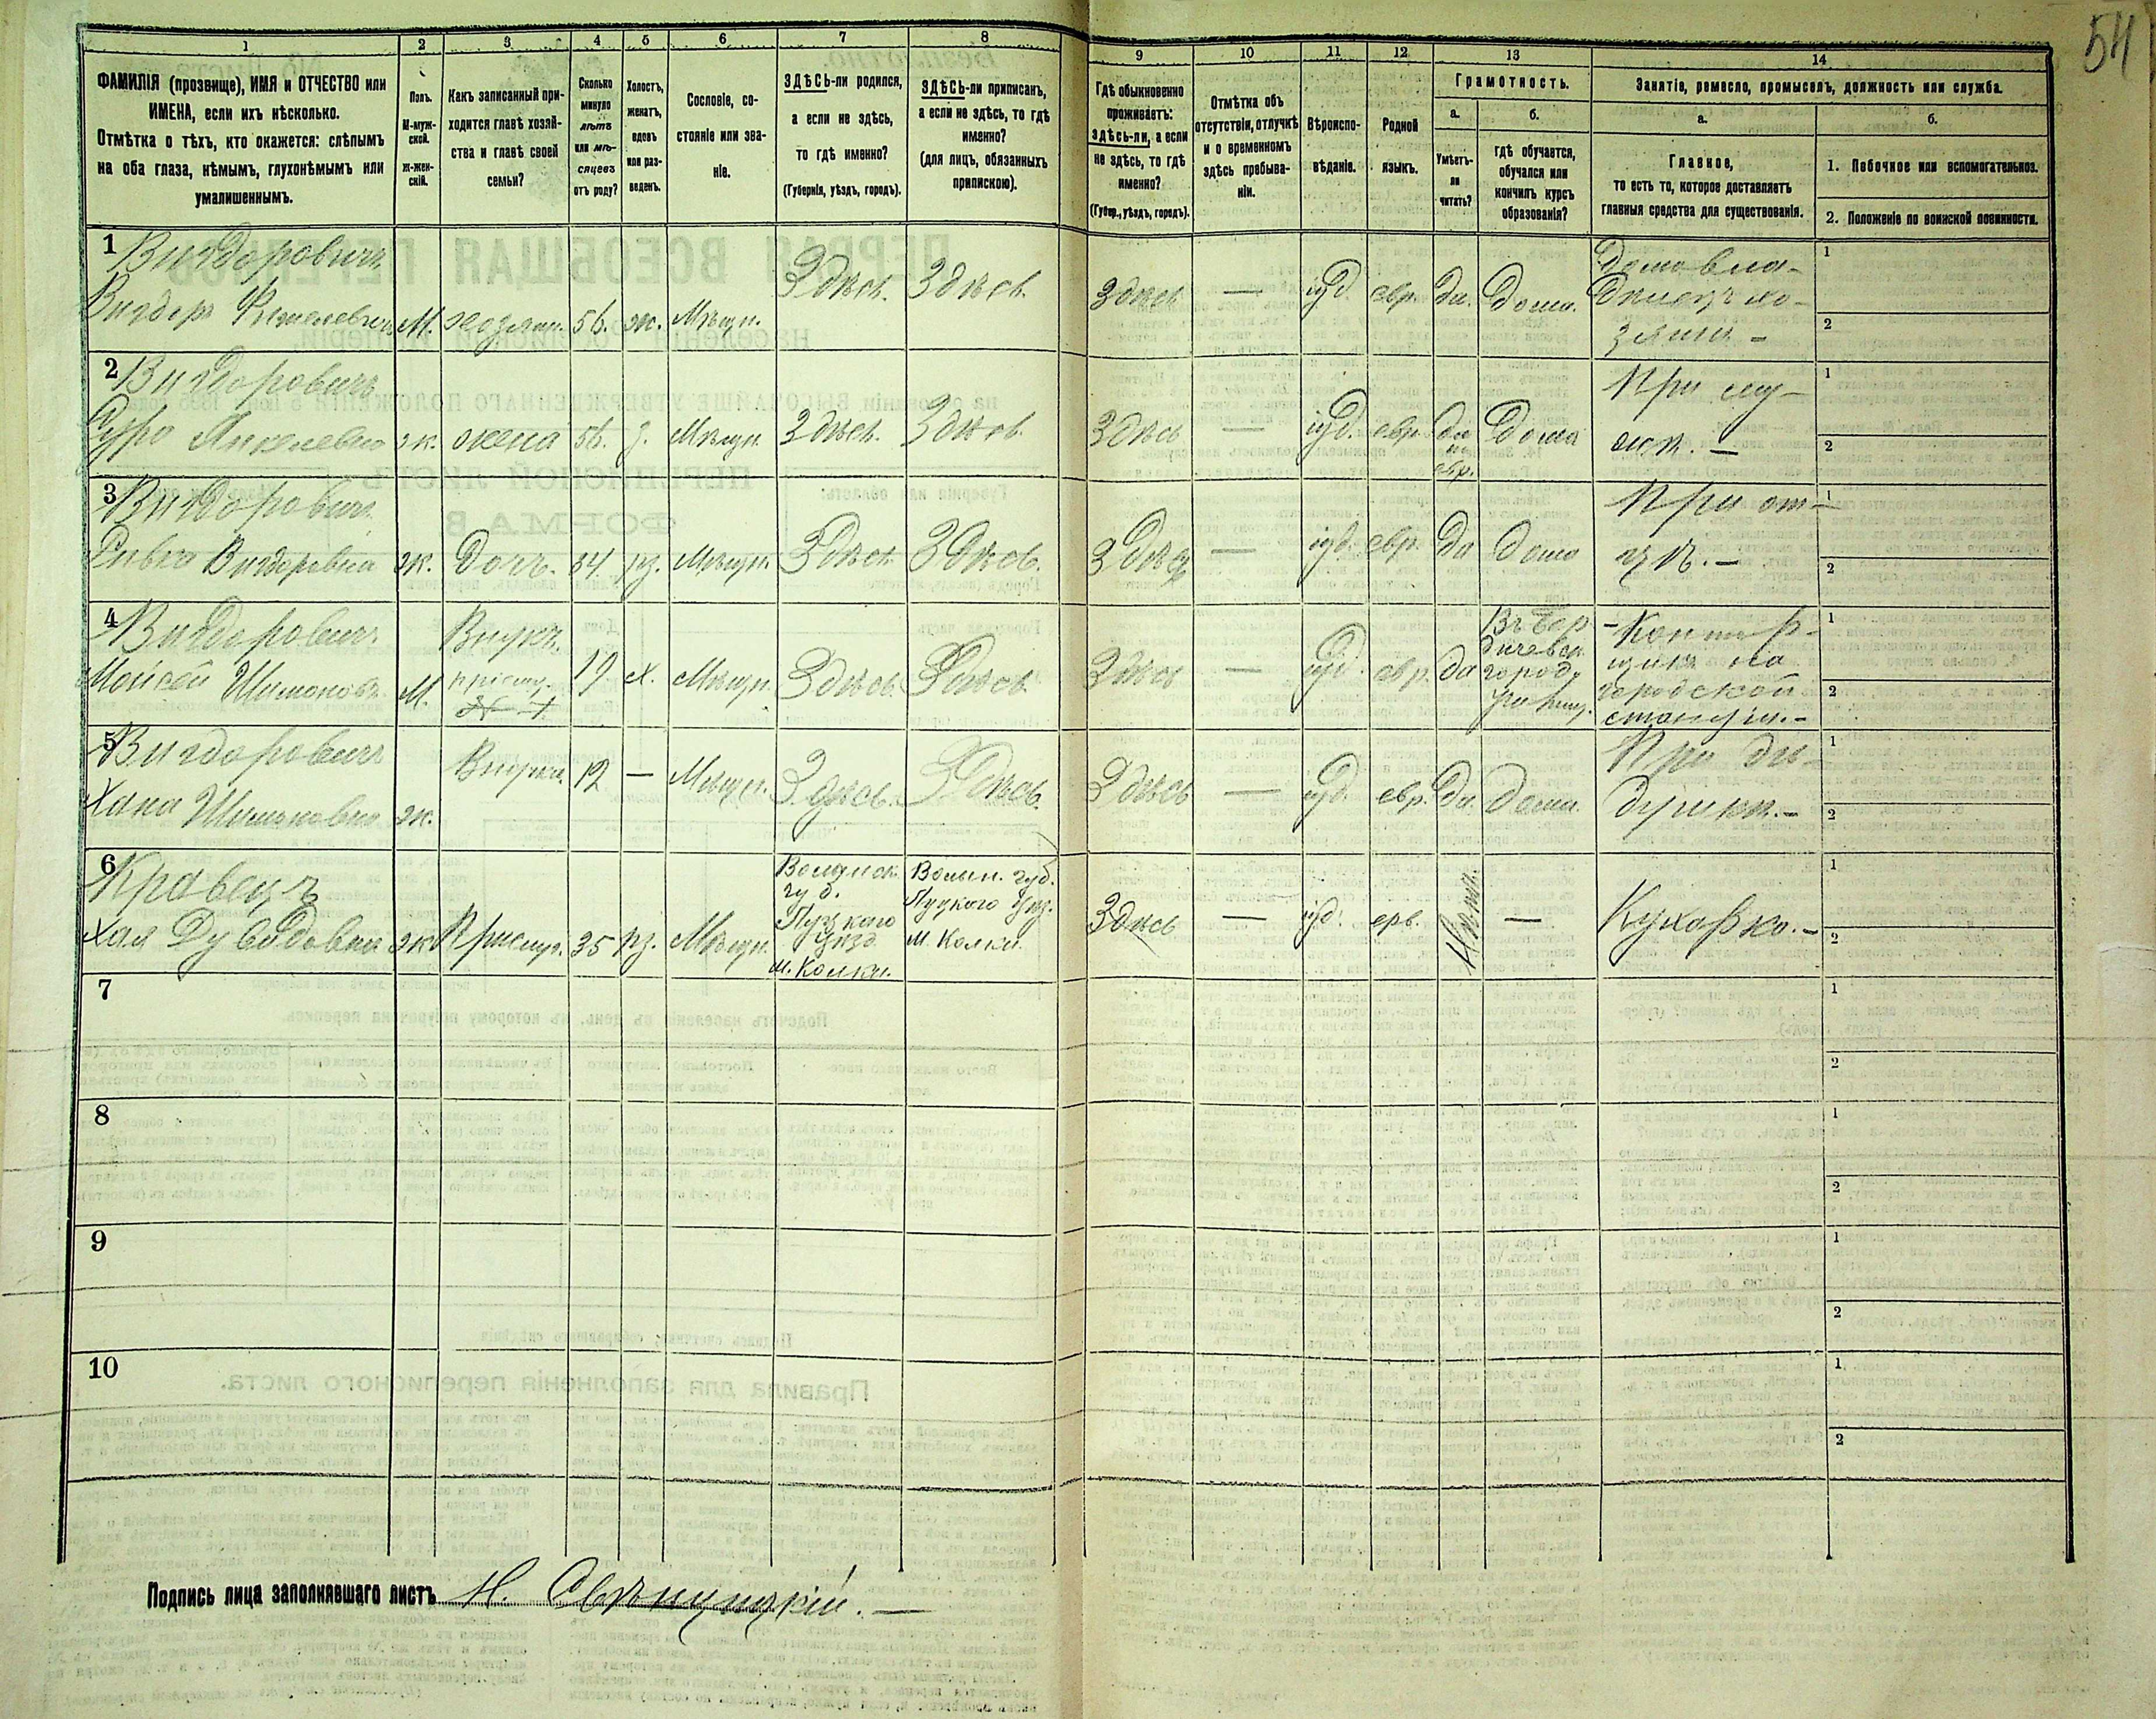 54
1 2 3 4 5 6 7 8 9 10 11 12 13 14
ФАМИЛІЯ (прозвище), ИМЯ и ОТЧЕСТВО или
ИМЕНА, если ихъ нѣсколько.
Отмѣтка о тѣхъ, кто окажется: слѣпымъ
на оба глаза, нѣмымъ, глухонѣмымъ или
умалишеннымъ.
Полъ.
М-муж-
ской.
Ж-жен-
скій.
Какъ записанный при-
ходится главѣ хозяй-
ства и главѣ своей
семьи?
Сколько
минуло
лѣтъ
или мѣ-
сяцевъ
отъ роду?
Холостъ,
женатъ,
вдовъ
или раз-
веденъ.
Сословіе, со-
стояніе или зва-
ніе.
ЗДѢСЬ-ли родился,
а если не здѣсь,
то гдѣ именно?
(Губернія, уѣздъ, городъ).
ЗДѢСЬ-ли приписанъ,
а если не здѣсь, то гдѣ
именно?
(для лицъ, обязанныхъ
припискою).
Гдѣ обыкновенно
проживаетъ:
здѣсь-ли, а если
не здѣсь, то гдѣ
именно?
(Губер., уѣздъ, городъ).
Отмѣтка объ
отсутствіи, отлучкѣ
и о временномъ
здѣсь пребыва-
ніи.
Вѣроиспо-
вѣданіе.
Родной
языкъ.
Грамотность.
а.
Умѣетъ-
ли
читать?
б.
гдѣ обучается,
обучался или
кончилъ курсъ
образованія?
Занятіе, ремесло, промыселъ, должность или служба.
а.
Главное,
то есть то, которое доставляетъ
главныя средства для существованія.
б.
1. Побочное или вспомогательное.
2. Положеніе по воинской повинности.
1 Вигдоровичъ
Вигдоръ М. хозяин. 56. ж. Мѣщн. Здѣсь. Здѣсь. Здѣсь — іуд. евр. да. дома.
Домовла-
дѣлецъ хо-
зяинъ –
1
2
2 Вигдоровичъ
ж. жена 56. з. Мѣщн. Здѣсь. Здѣсь. Здѣсь — іуд. евр. да
по
евр.
Дома
При му-
жѣ. –
1
2
3 Вигдоровичъ
Ривка Вигдоровна ж. Дочь. 34 рз. Мѣщн. Здѣсь Здѣсь. Здѣсь — іуд. евр. да дома
При от-
цѣ. –
1
2
4 Вигдоровичъ
Моисей Шимоновъ М.
Внукъ.
19 х. Мѣщн. Здѣсь. Здѣсь. Здѣсь — іуд. евр. да
Въ Бер-
дичевск.
город.
училищ.
Контор-
щикъ на
городской
станціи. –
1
2
5 Вигдоровичъ
Хана Шимоновна ж. Внучка. 12 — Мѣщн. Здѣсь. Здѣсь. Здѣсь — іуд. евр. да. дома.
При дѣ-
душкѣ. –
1
2
6 Кравецъ
Хая Дувидовна ж. Прислуг. 35 рз. Мѣщн.
Волынск.
губ.
Луцкаго
уѣзд.
м. Колки.
Волын. губ.
Луцкаго уѣз.
м. Колки.
Здѣсь — іуд. евр. —
Кухарка. –
1
2
7
1
2
8
1
2
9
1
2
10
1
2
Подпись лица заполнявшаго листъ